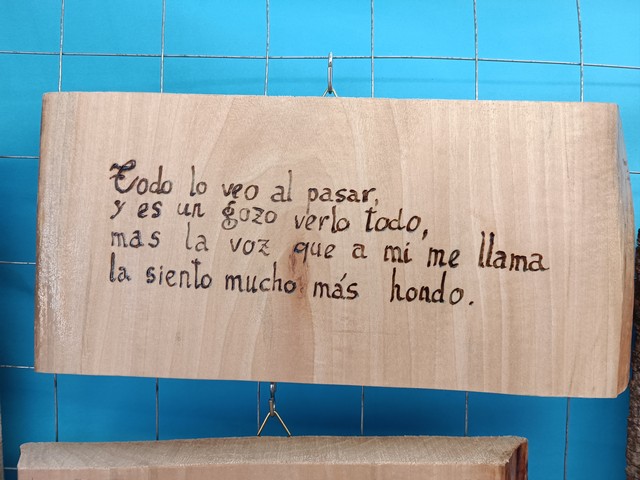 Todo lo veo al pasar,
y es un gozo verlo todo,
mas la voz que a mi me llama
la siento mucho más hondo.